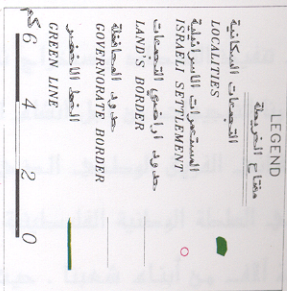 LEGEND
مفتاح الخريطة
التجمعات السكانية
LOCALITIES
المستعمرات الاسرائيلية
ISRAELI SETTLEMENT
حدود اراضي التجمعات
LAND'S BORDER
حدود المحافظة
GOVERNORATE BORDER
الخط الاخضر
GREEN LINE
6 4 2 0
كم